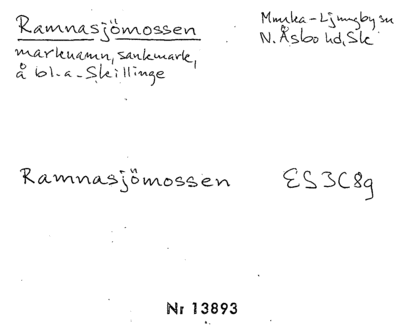 Ramnasjömossen
Munka-Ljungby sn
marknamn, sankmark,
N. Åsbo hd, Sk
å bl.a. Skillinge
Ramnasjömossen ES3C8g
Nr 13893